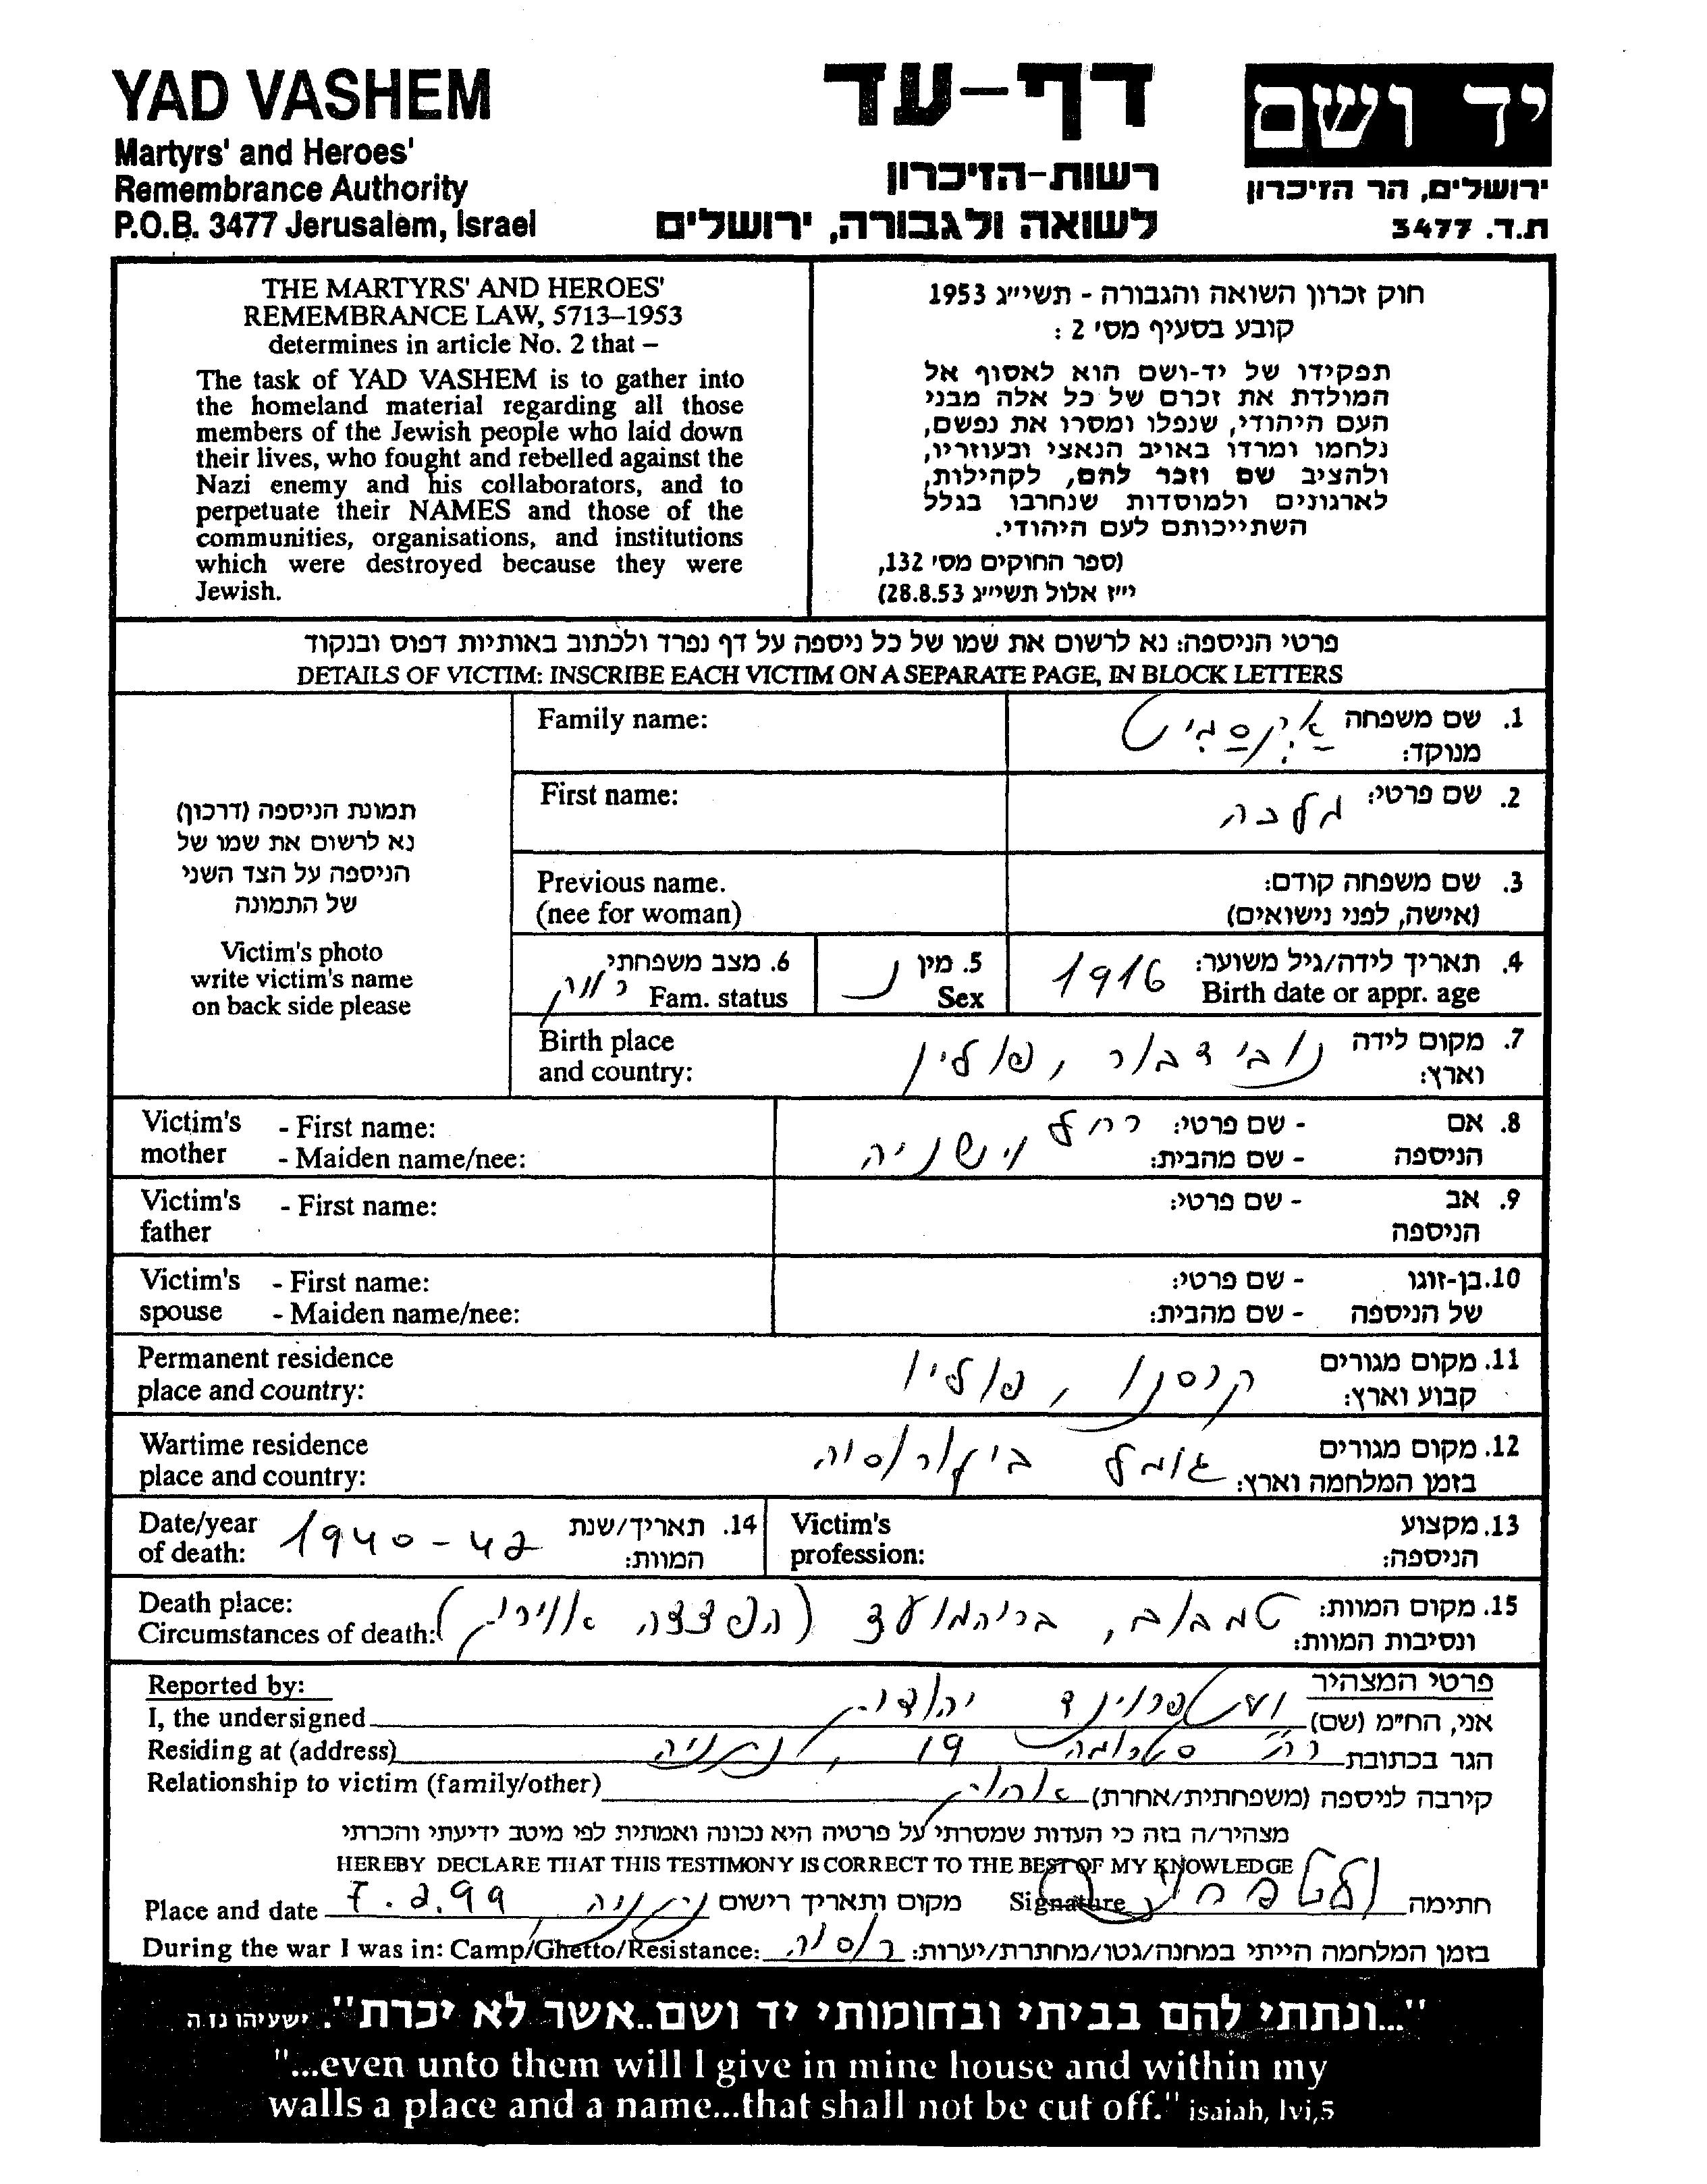 YAD VASHEM
Martyrs' and Heroes'
Remembrance Authority
P.O.B. 3477 Jerusalem, Israel
דף-עד
רשות-הזיכרון
לשואה ולגבורה, ירושלים
יד ושם
ירושלים, הר הזיכרון
ת.ד. 3477
THE MARTYRS' AND HEROES'
REMEMBRANCE LAW, 5713–1953
determines in article No. 2 that –
The task of YAD VASHEM is to gather into
the homeland material regarding all those
members of the Jewish people who laid down
their lives, who fought and rebelled against the
Nazi enemy and his collaborators, and to
perpetuate their NAMES and those of the
communities, organisations, and institutions
which were destroyed because they were
Jewish.
חוק זכרון השואה והגבורה - תשי״ג 1953
קובע בסעיף מס׳ 2 :
תפקידו של יד-ושם הוא לאסוף אל
המולדת את זכרם של כל אלה מבני
העם היהודי, שנפלו ומסרו את נפשם,
נלחמו ומרדו באויב הנאצי ובעוזריו,
ולהציב שם וזכר להם, לקהילות,
לארגונים ולמוסדות שנחרבו בגלל
השתייכותם לעם היהודי.
(ספר החוקים מס׳ 132,
י״ז אלול תשי״ג 28.8.53)
פרטי הניספה: נא לרשום את שמו של כל ניספה על דף נפרד ולכתוב באותיות דפוס ובנקוד
DETAILS OF VICTIM: INSCRIBE EACH VICTIM ON A SEPARATE PAGE, IN BLOCK LETTERS
תמונת הניספה (דרכון)
נא לרשום את שמו של
הניספה על הצד השני
של התמונה
Victim's photo
write victim's name
on back side please
Family name:
1. שם משפחה
מנוקד:
First name:
2. שם פרטי:
Previous name.
(nee for woman)
3. שם משפחה קודם:
(אישה, לפני נישואים)
4. תאריך לידה/גיל משוער: 1916
Birth date or appr. age
5. מין נ
Sex
6. מצב משפחתי
Fam. status
Birth place
and country:
7. מקום לידה נובי דבור, פולין
וארץ:
Victim's mother - First name:
- Maiden name/nee:
8. אם הניספה - שם פרטי: רחל
- שם מהבית: וישניה
Victim's father - First name:
9. אב הניספה - שם פרטי:
Victim's spouse - First name:
- Maiden name/nee:
10. בן-זוגו של הניספה - שם פרטי:
- שם מהבית:
Permanent residence
place and country:
11. מקום מגורים קרוסנו, פולין
קבוע וארץ:
Wartime residence
place and country:
12. מקום מגורים
בזמן המלחמה וארץ: גומל בילורוסיה
Date/year
of death:
14. תאריך/שנת
המוות: 1940-42
Victim's
profession:
13. מקצוע
הניספה:
Death place:
Circumstances of death:
15. מקום המוות: טמבוב, ברימועצ (הפצצה אוירית)
ונסיבות המוות:
Reported by:
פרטי המצהיר
I, the undersigned
אני, הח״מ (שם) וולטפרוינד יהודית
Residing at (address)
הגר בכתובת רח' סטרומה 19, נתניה
Relationship to victim (family/other)
קירבה לניספה (משפחתית/אחרת) אחות
מצהיר/ה בזה כי העדות שמסרתי על פרטיה היא נכונה ואמתית לפי מיטב ידיעתי והכרתי
HEREBY DECLARE THAT THIS TESTIMONY IS CORRECT TO THE BEST OF MY KNOWLEDGE
Place and date 7.2.99 נתניה מקום ותאריך רישום Signature חתימה
During the war I was in: Camp/Ghetto/Resistance: רוסיה בזמן המלחמה הייתי במחנה/גטו/מחתרת/יערות:
"...ונתתי להם בביתי ובחומותי יד ושם..אשר לא יכרת". ישעיהו נו ה
"...even unto them will I give in mine house and within my
walls a place and a name...that shall not be cut off." isaiah, lvi,5